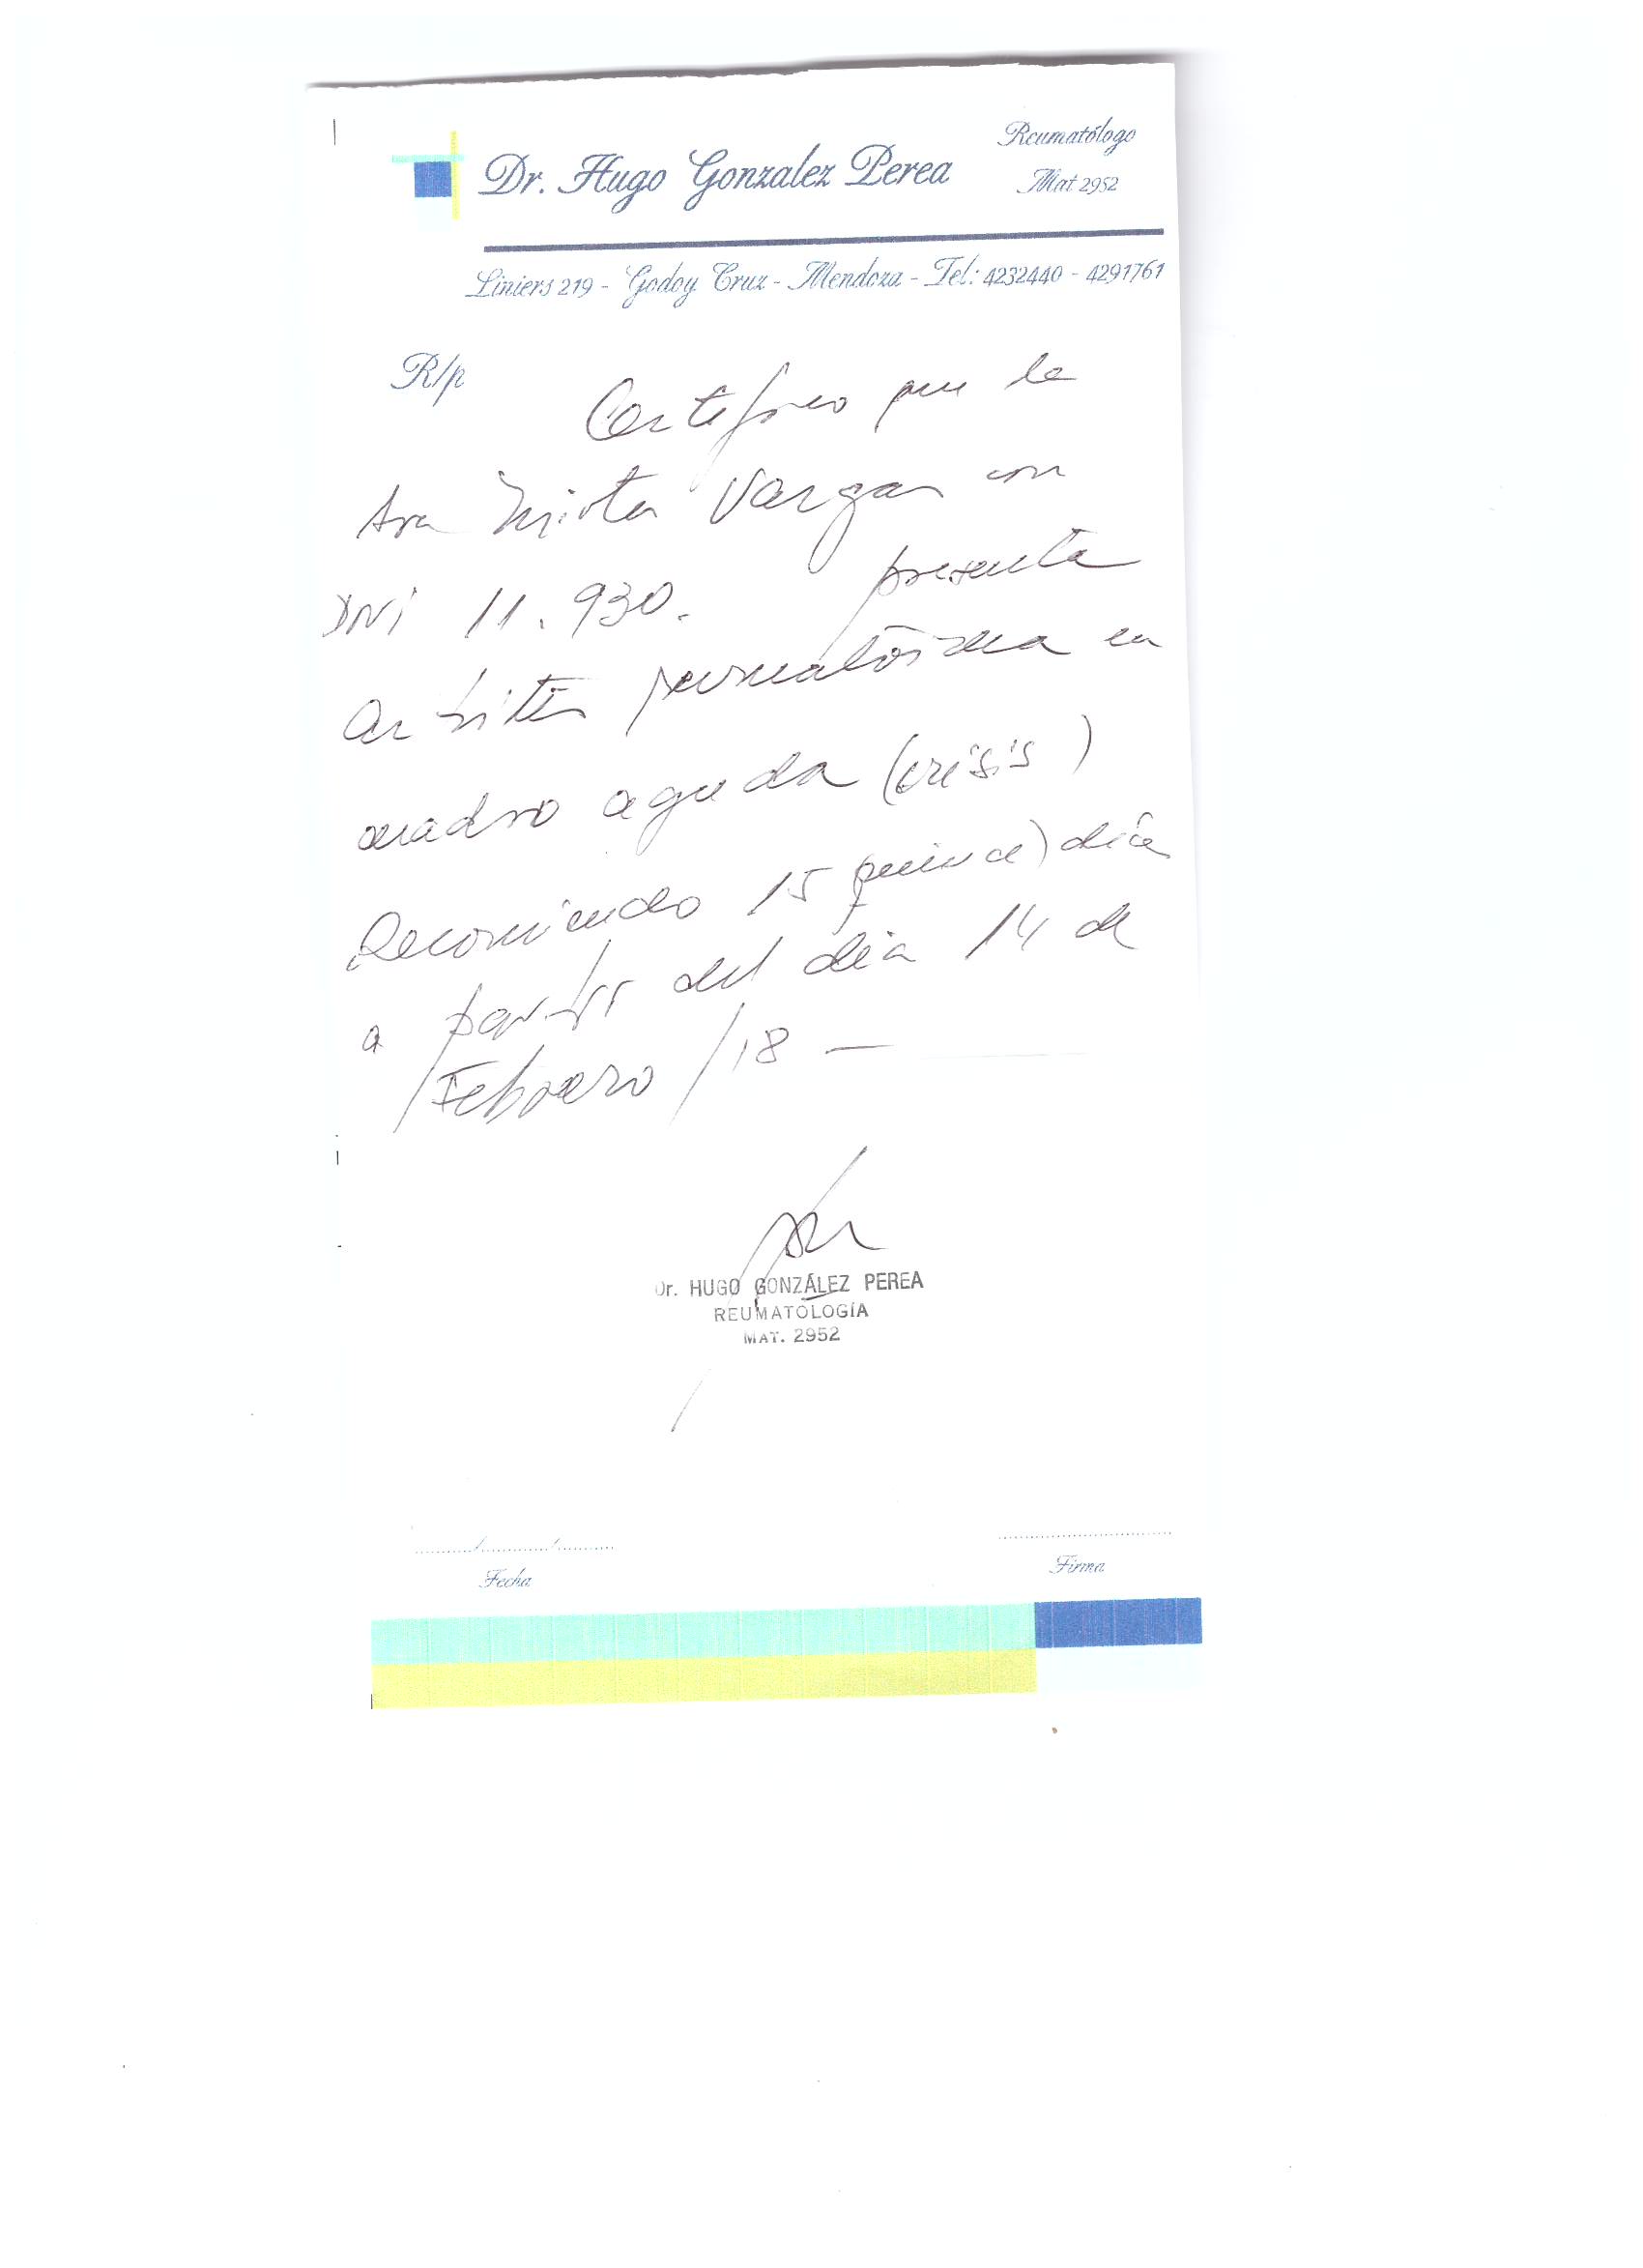 Dr. Hugo Gonzalez Perea
Reumatólogo
Mat 2952
Liniers 219 - Godoy Cruz - Mendoza - Tel: 4232440 - 4291761
R/p
Certifico que la
Sra Mirta Vargas con
DNI 11.930. presenta
Artritis reumatoidea en
cuadro aguda (crisis)
Recomiendo 15 quince) días
a partir del día 14 de
Febrero /18 —
Dr. HUGO GONZÁLEZ PEREA
REUMATOLOGÍA
MAT. 2952
Fecha
Firma